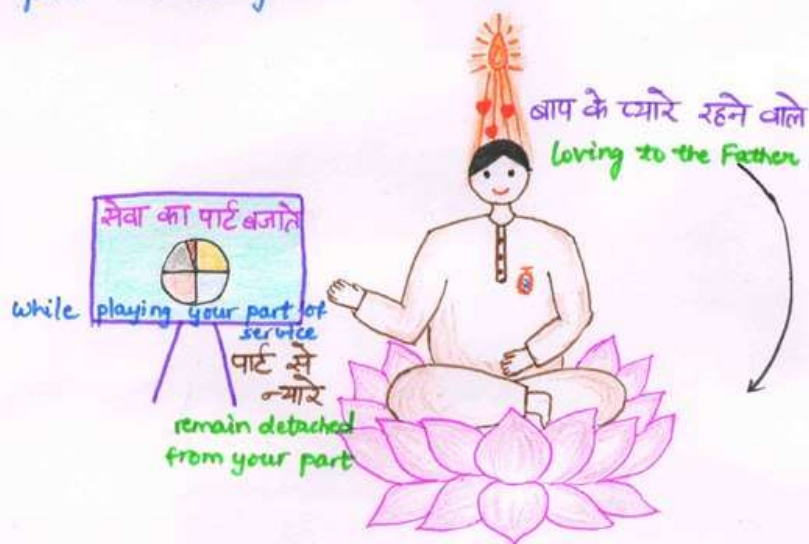 बाप के प्यारे रहने वाले
loving to the Father
सेवा का पार्ट बजाते
While playing your part of
service
पार्ट से
न्यारे
remain detached
from your part